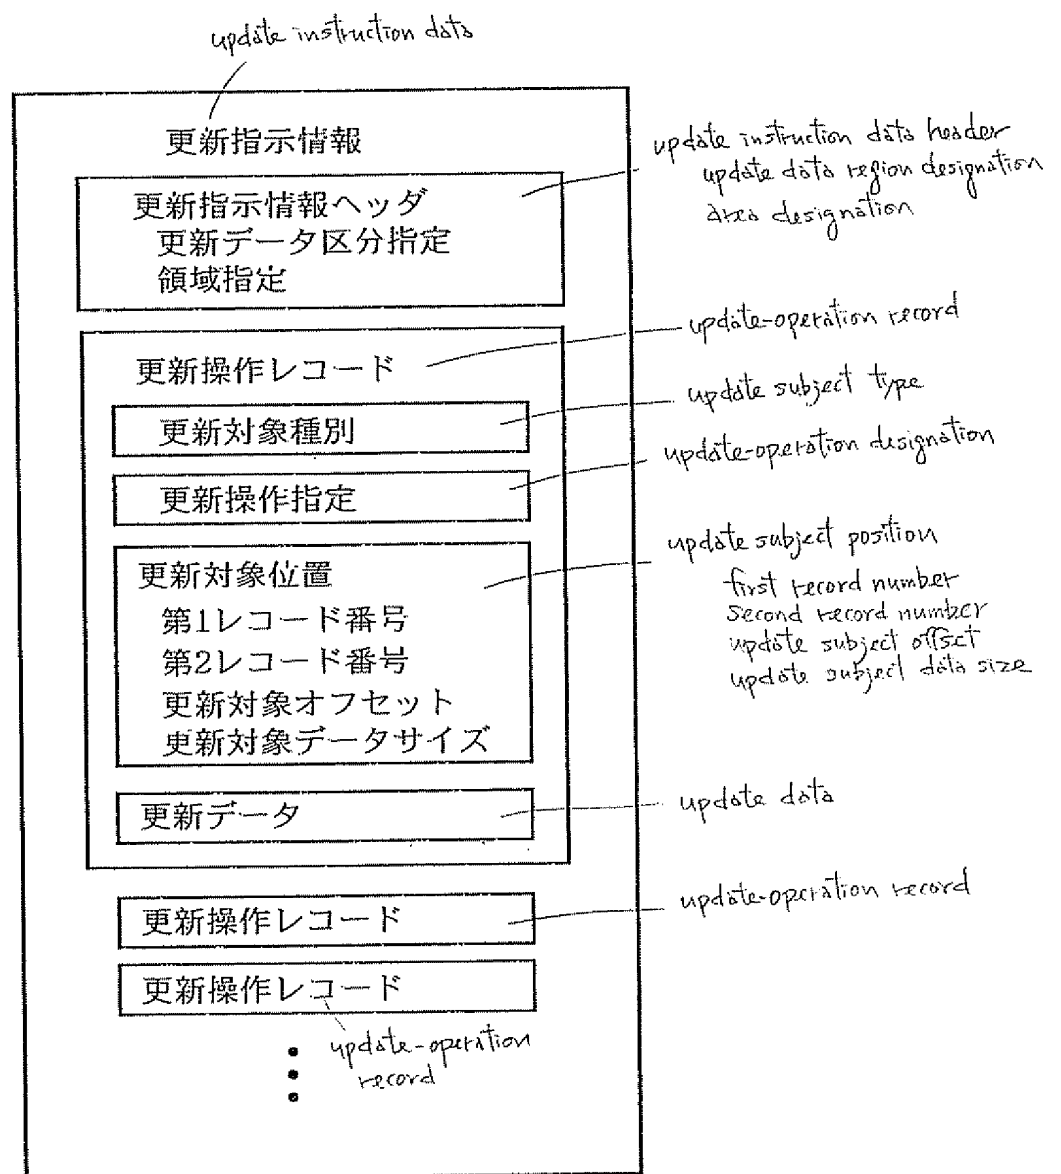 update instruction data
更新指示情報
更新指示情報ヘッダ
更新データ区分指定
領域指定
update instruction data header
update data region designation
area designation
更新操作レコード
update-operation record
更新対象種別
update subject type
更新操作指定
update-operation designation
更新対象位置
第1レコード番号
第2レコード番号
更新対象オフセット
更新対象データサイズ
update subject position
first record number
second record number
update subject offset
update subject data size
更新データ
update data
更新操作レコード
update-operation record
更新操作レコード
update-operation
record